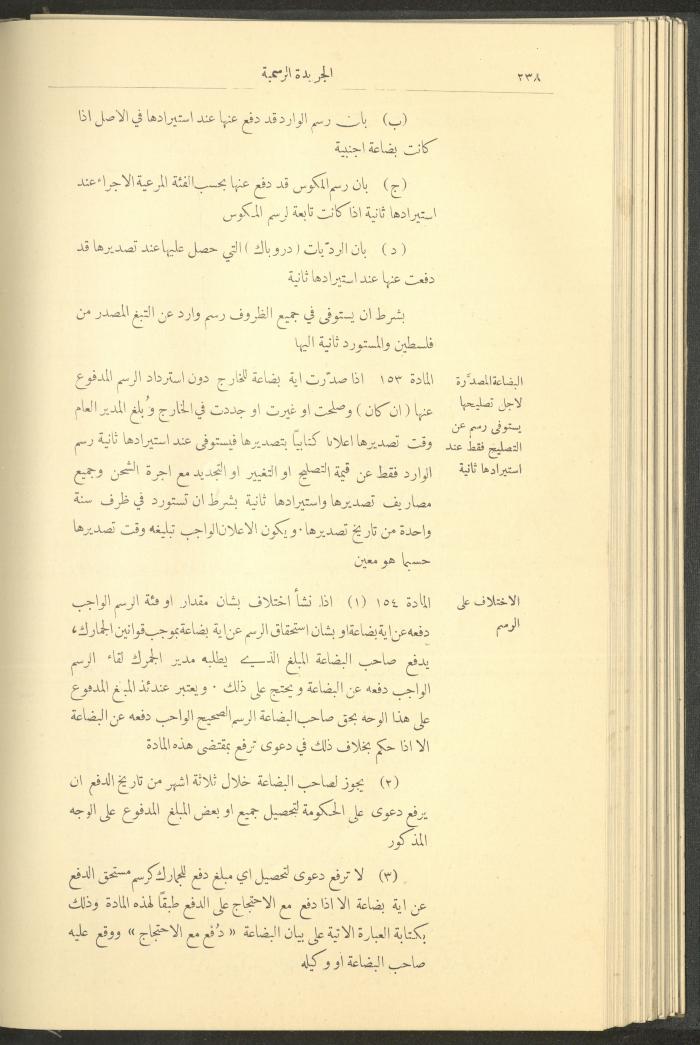 ٢٣٨
الجريدة الرسمية
(ب) بان رسم الوارد قد دفع عنها عند استيرادها في الاصل اذا
كانت بضاعة اجنبية
(ج) بان رسم المكوس قد دفع عنها بحسب الفئة المرعية الاجراء عند
استيرادها ثانية اذا كانت تابعة لرسم المكوس
(د) بان الرديّات (دروباك) التي حصل عليها عند تصديرها قد
دفعت عنها عند استيرادها ثانية
بشرط ان يستوفى في جميع الظروف رسم وارد عن التبغ المصدر من
فلسطين والمستورد ثانية اليها
البضاعة المصدَّرة
لاجل تصليحها
يستوفى رسم عن
التصليح فقط عند
استيرادها ثانية
المادة ١٥٣ اذا صدّرت اية بضاعة للخارج دون استرداد الرسم المدفوع
عنها (ان كان) وصلحت او غيرت او جددت في الخارج وبُلغ المدير العام
وقت تصديرها اعلانا كتابيًا بتصديرها فيستوفى عند استيرادها ثانية رسم
الوارد فقط عن قيمة التصليح او التغيير او التجديد مع اجرة الشحن وجميع
مصاريف تصديرها واستيرادها ثانية بشرط ان تستورد في ظرف سنة
واحدة من تاريخ تصديرها. ويكون الاعلان الواجب تبليغه وقت تصديرها
حسبما هو معين
الاختلاف على
الرسم
المادة ١٥٤ (١) اذا نشأ اختلاف بشان مقدار او فئة الرسم الواجب
دفعه عن اية بضاعة او بشان استحقاق الرسم عن اية بضاعة بموجب قوانين الجمارك،
يدفع صاحب البضاعة المبلغ الذي يطلبه مدير الجمرك لقاء الرسم
الواجب دفعه عن البضاعة ويحتج على ذلك. ويعتبر عندئذ المبلغ المدفوع
على هذا الوجه بحق صاحب البضاعة الرسم الصحيح الواجب دفعه عن البضاعة
الا اذا حكم بخلاف ذلك في دعوى ترفع بمقتضى هذه المادة
(٢) يجوز لصاحب البضاعة خلال ثلاثة اشهر من تاريخ الدفع ان
يرفع دعوى على الحكومة لتحصيل جميع او بعض المبلغ المدفوع على الوجه
المذكور
(٣) لا ترفع دعوى لتحصيل اي مبلغ دفع للجمارك كرسم مستحق الدفع
عن اية بضاعة الا اذا دفع مع الاحتجاج على الدفع طبقًا لهذه المادة وذلك
بكتابة العبارة الاتية على بيان البضاعة «دُفع مع الاحتجاج» ووقع عليه
صاحب البضاعة او وكيله